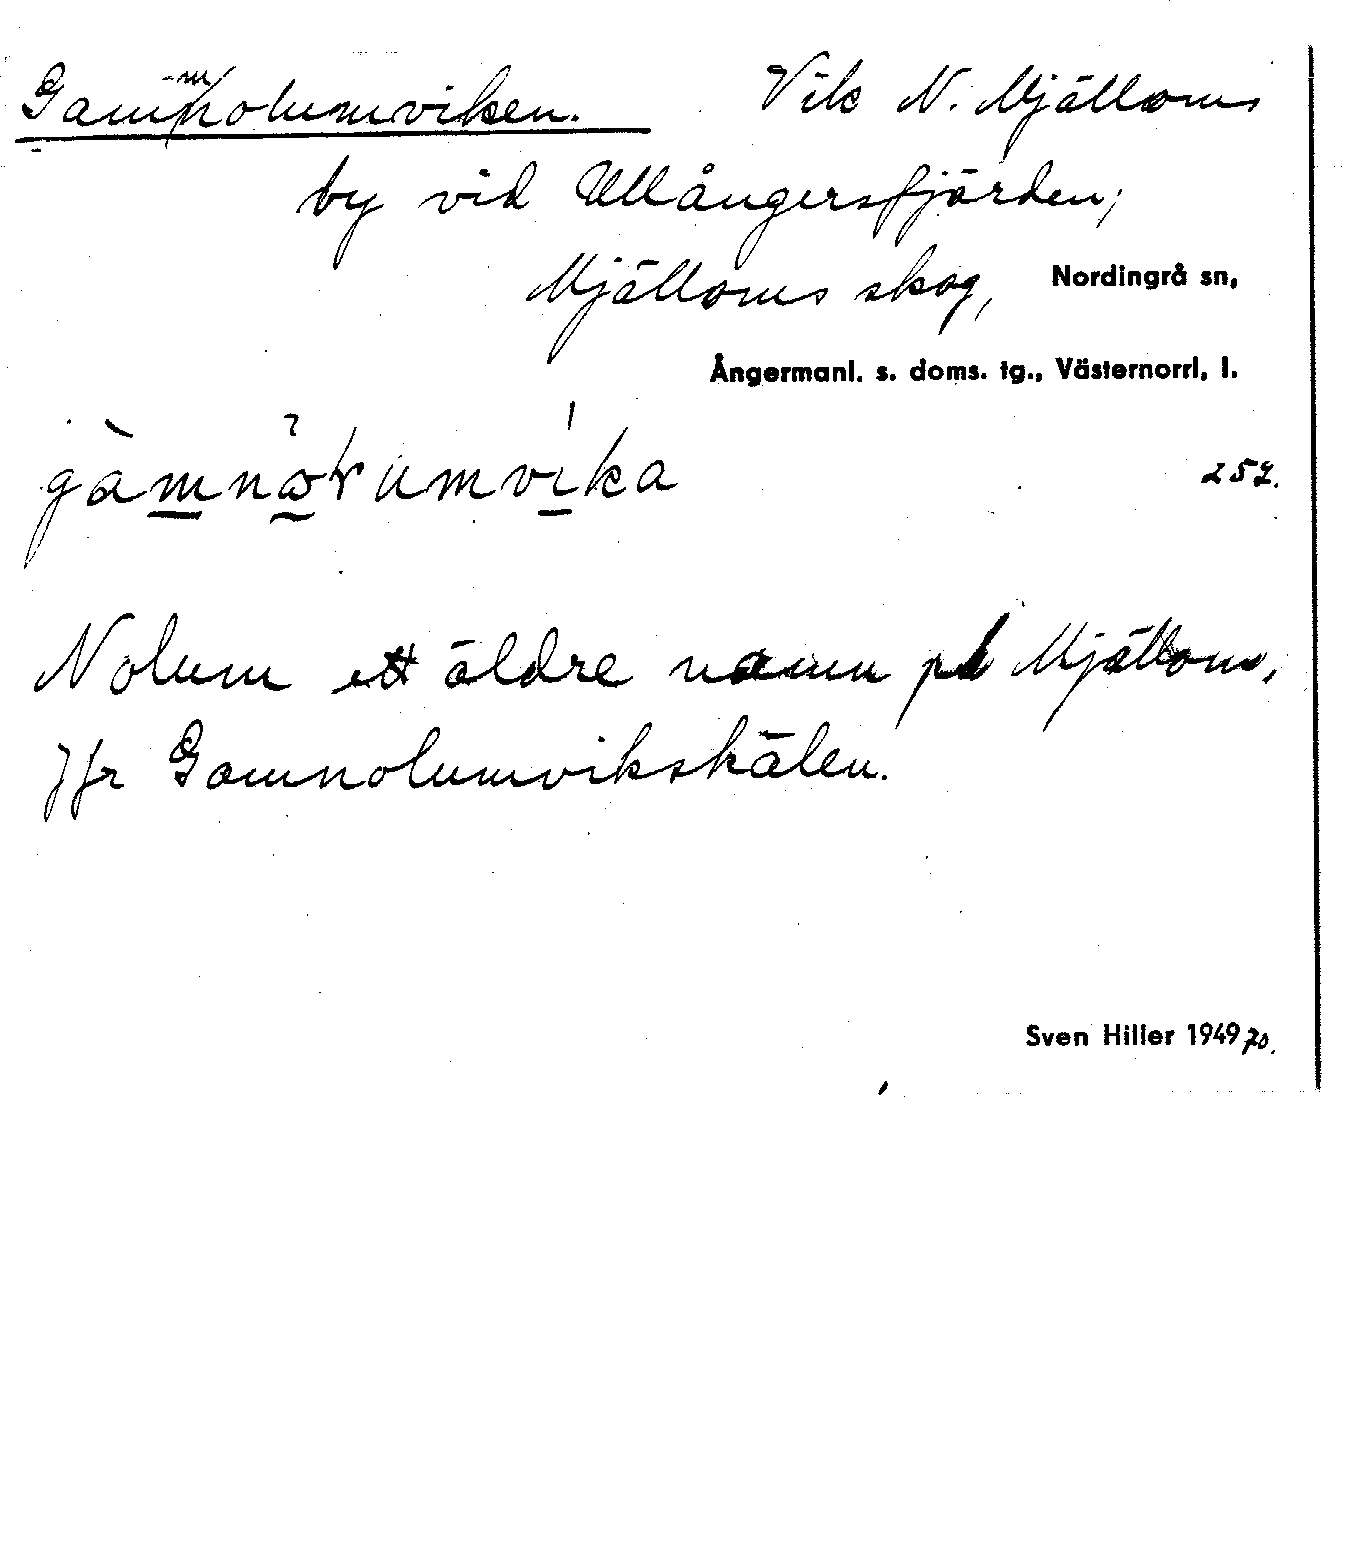 Gammnolumviken. Vik N. Mjälloms
by vid Ullångersfjärden;
Mjälloms skog, Nordingrå sn,
Ångermanl. s. doms. tg., Västernorrl. l.
gàmnòrumvika 252.
Nolum ett äldre namn på Mjällom,
jfr Gamnolumvikskälen.
Sven Hiller 1949 70.